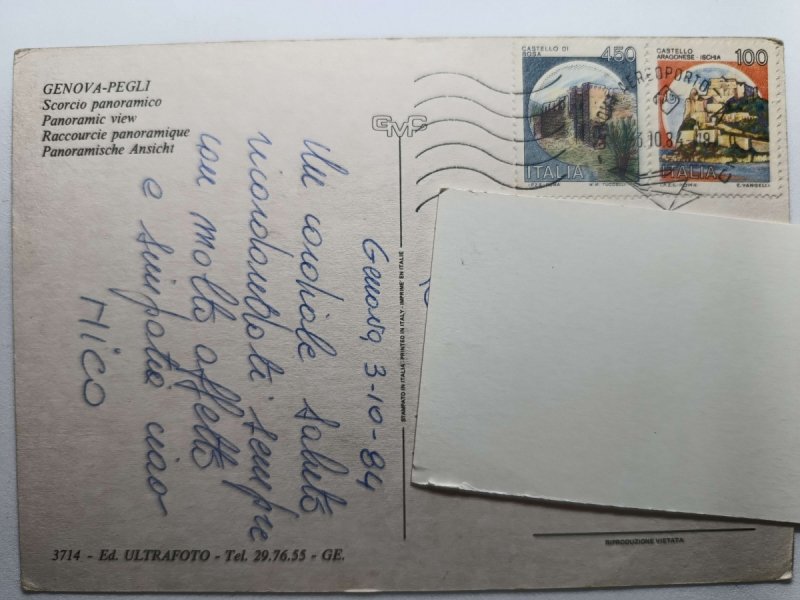 GENOVA-PEGLI
Scorcio panoramico
Panoramic view
Raccourcie panoramique
Panoramische Ansicht
GMC
CASTELLO DI
ROSA
450
ITALIA
I.P.Z.S. ROMA
CASTELLO
ARAGONESE - ISCHIA
100
ITALIA
I.P.Z.S. ROMA
E. VANGELLI
AEROPORTO
3.10.84
Genova, 3-10-84
Un cordiale saluto
ricordandoti sempre
con molto affetto
e simpatia ciao
Mico
STAMPATO IN ITALIA - PRINTED IN ITALY - IMPRIMÉ EN ITALIE
RIPRODUZIONE VIETATA
3714 - Ed. ULTRAFOTO - Tel. 29.76.55 - GE.